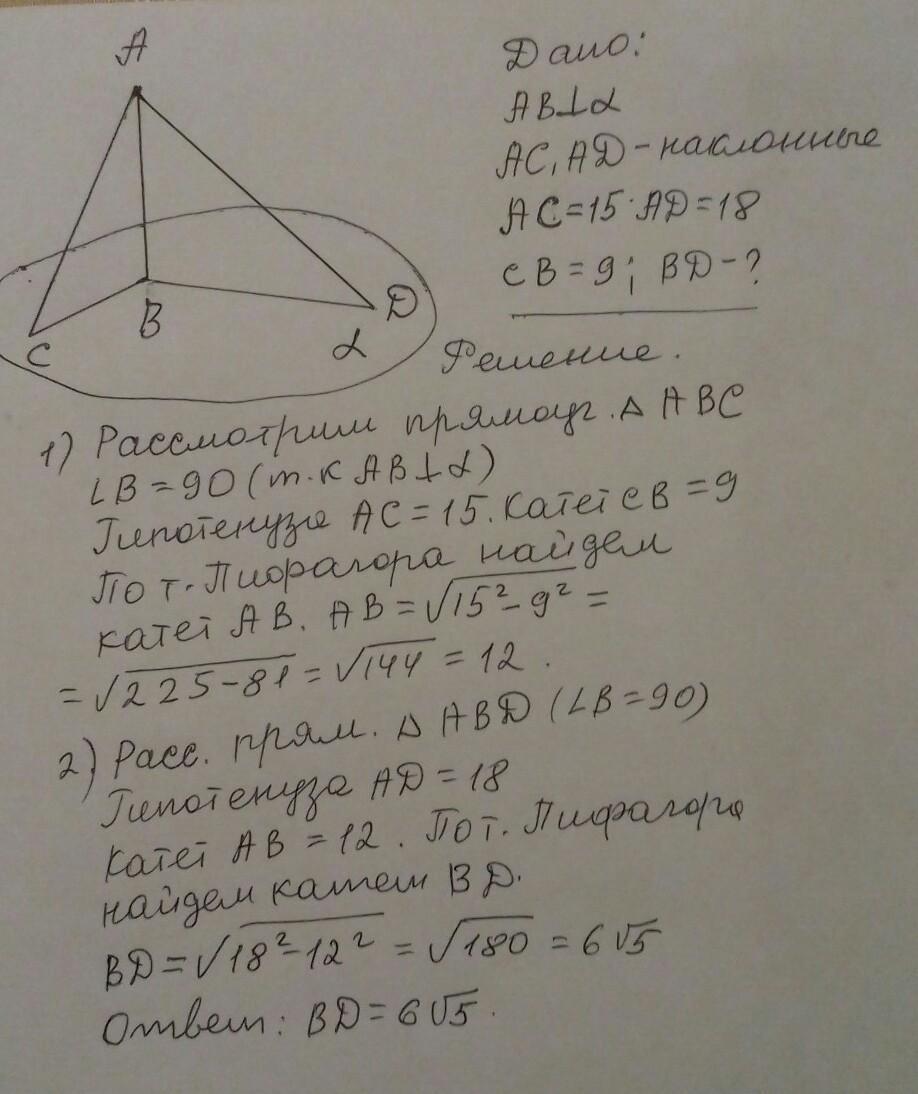 A
B
C
D
α
Дано:
AB⊥α
AC, AD - наклонные
AC=15 AD=18
CB=9; BD-?
Решение.
1) Рассмотрим прямоуг. △ ABC
∠B=90 (т.к AB⊥α)
Гипотенуза AC=15. Катет CB=9
По т. Пифагора найдем
катет AB. AB=√15²-9² =
=√225-81=√144=12.
2) Расс. прям. △ ABD (∠B=90)
Гипотенуза AD=18
Катет AB=12. По т. Пифагора
найдем катет BD.
BD=√18²-12² = √180 = 6√5
Ответ: BD=6√5.